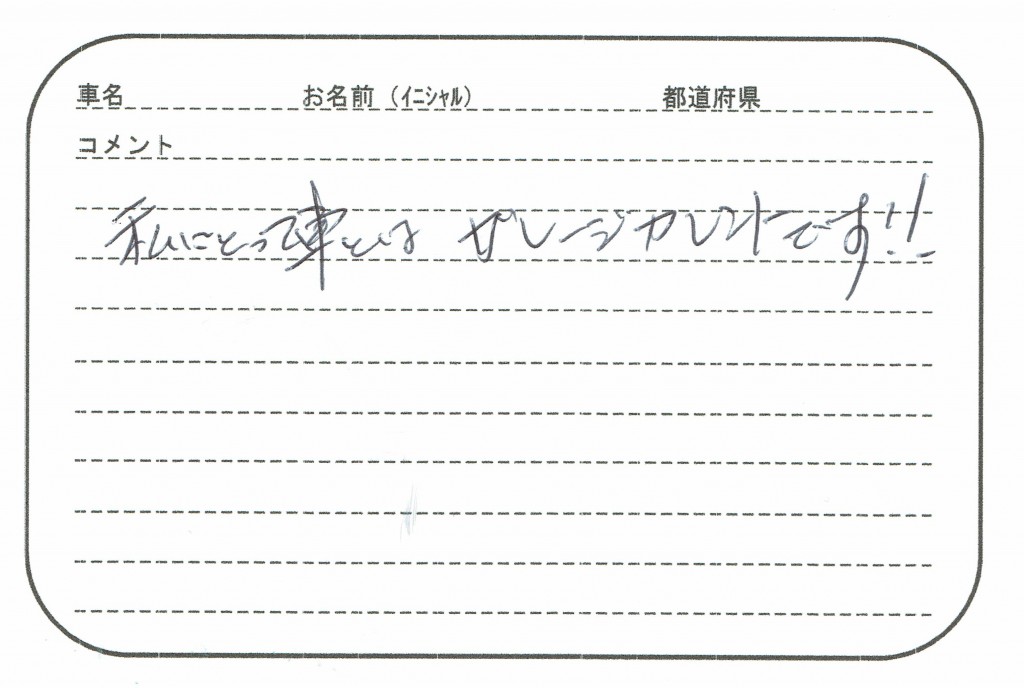 車名 お名前（イニシャル） 都道府県
コメント
私にとって車とは ガレージカレントです!!